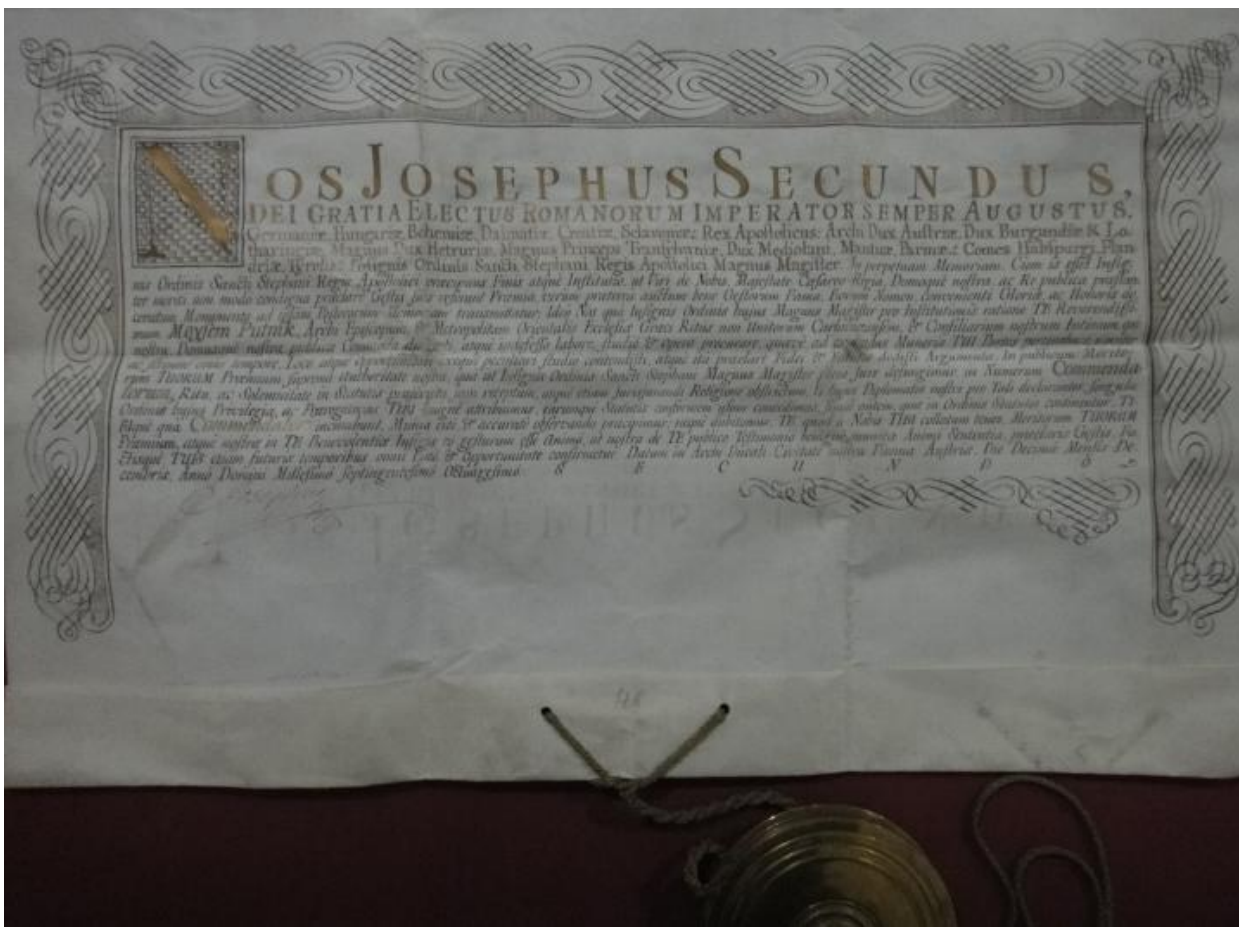 NOS JOSEPHUS SECUNDUS,
DEI GRATIA ELECTUS ROMANORUM IMPERATOR SEMPER AUGUSTUS,
Germaniæ, Hungariæ, Bohemiæ, Dalmatiæ, Croatiæ, Sclavoniæ &c. Rex Apostolicus; Archi Dux Austriæ, Dux Burgundiæ & Lo-
tharingiæ, Magnus Dux Hetruriæ, Magnus Princeps Transilvaniæ, Dux Mediolani, Mantuæ, Parmæ &c. Comes Habspurgi, Flan-
driæ, Tyrolis &c. Insignis Ordinis Sancti Stephani Regis Apostolici Magnus Magister. In perpetuam Memoriam. Cum is esset Insig-
nis Ordinis Sancti Stephani Regis Apostolici præcipuus Finis atque Institutio, ut Viri de Nobis, Majestate Cæsareo Regia, Domoque nostra, ac Re publica præstan-
ter meriti non modo condigna præclare Gestis suis referant Præmia, verum præterea auctum bene Gestorum Fama, Eorum Nomen convenienti Gloria, ac Honoris
Monumento ad seram Posterorum memoriam transmittatur; Ideo Nos qua Insignis Ordinis hujus Magnus Magister pro Institutionis ratione TE Reverendissi-
mum Moysem Putnik, Archi Episcopum, & Metropolitam Orientalis Ecclesiæ Græci Ritus non Unitorum Carlovicziensem, & Consiliarium nostrum Intimum
nostra, Domusque nostræ publica Commoda labore, studio & opera procurare, quæve ad Muneris TUI Partes pertinent
ac omni tempore, Loco atque opportunitate studio contendisti, atque ita præclara Fidei & dedisti Argumenta. In publicum Merito-
rum TUORUM Præmium suprema Authoritate nostra, qua ut Insignis Ordinis Sancti Stephani Magnus Magister pleno Jure defungimur in Numerum Commenda-
torum, Ritu, ac Solemnitate in Statutis præscripta receptum, atque etiam Jurisjurandi Religione obstrictum, hujus Diplomatis nostri pro Tali declaramus, singula
Ordinis hujus Privilegia, ac Prærogativas TIBI attribuimus, earumque Statutis conformem usum concedimus, autem, quæ in Ordinis Statutis continentur, TI-
BIque qua Commendatori incumbunt, Munia rite & accurate observanda præcipimus; neque dubitamus, TE quod a Nobis TIBI collatum tenes, Meritorum TUORUM
Præmium, atque nostræ in TE Benevolentiæ Insigne eo gesturum esse animo, ut nostra de TE publico Testimonio Animi Sententia, præclaris Gestis, Fa-
ctisque TUIS etiam futuris temporibus omni Loco & Opportunitate confirmetur. Datum in Archi Ducali Civitate nostra Vienna Austriæ, Die Decima Mensis De-
cembris, Anno Domini Millesimo Septingentesimo Octuagesimo. S E C U N D O